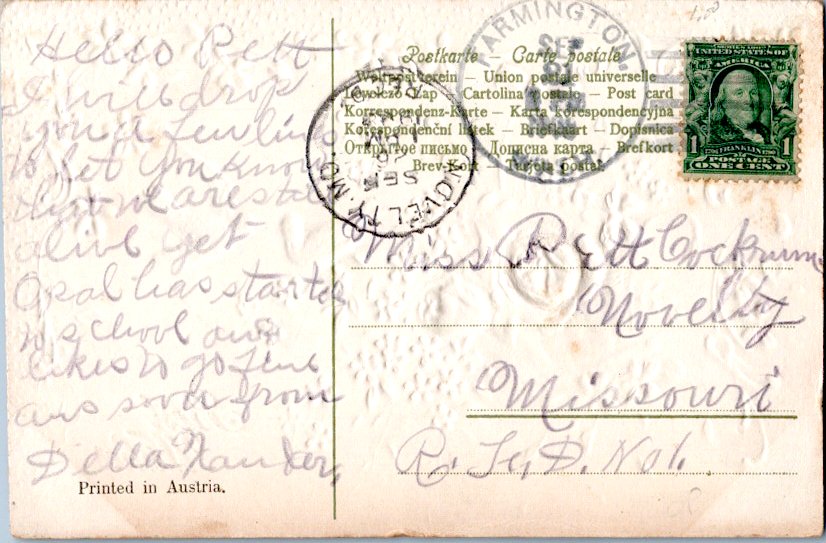 Hello Rett
I will drop
you a few lines
to let you know
that we are still
alive yet
Opal has started
to school and
likes to go fine
ans soon from
Della
Printed in Austria.
Postkarte – Carte postale
Weltpostverein – Union postale universelle
Levelező-Lap – Cartolina postale – Post card
Korrespondenz-Karte – Karta korespondencyjna
Korespondenční lístek – Briefkaart – Dopisnica
Открытое письмо – Дописна карта – Brefkort
Brev-Kort – Tarjeta postal
NOVELTY, MO.
SEP
FARMINGTON,
SEP
UNITED STATES OF
AMERICA
FRANKLIN
1 POSTAGE 1
ONE CENT
Miss Rett Cockrum
Novelty
Missouri
R. F. D. No 1.